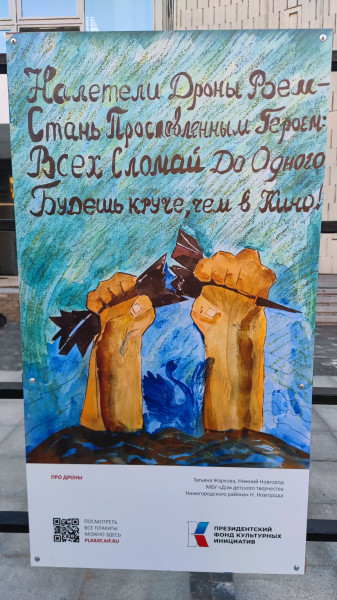 Налетели Дроны Роем-
Стань Прославленным Героем:
Всех Сломай До Одного
Будешь круче, чем в Кино!
ПРО ДРОНЫ
Татьяна Жаркова, Нижний Новгород
МБУ «Дом детского творчества
Нижегородского района» Н. Новгорода
ПОСМОТРЕТЬ
ВСЕ ПЛАКАТЫ
МОЖНО ЗДЕСЬ
PLAKAT.AIF.RU
ПРЕЗИДЕНТСКИЙ
ФОНД КУЛЬТУРНЫХ
ИНИЦИАТИВ